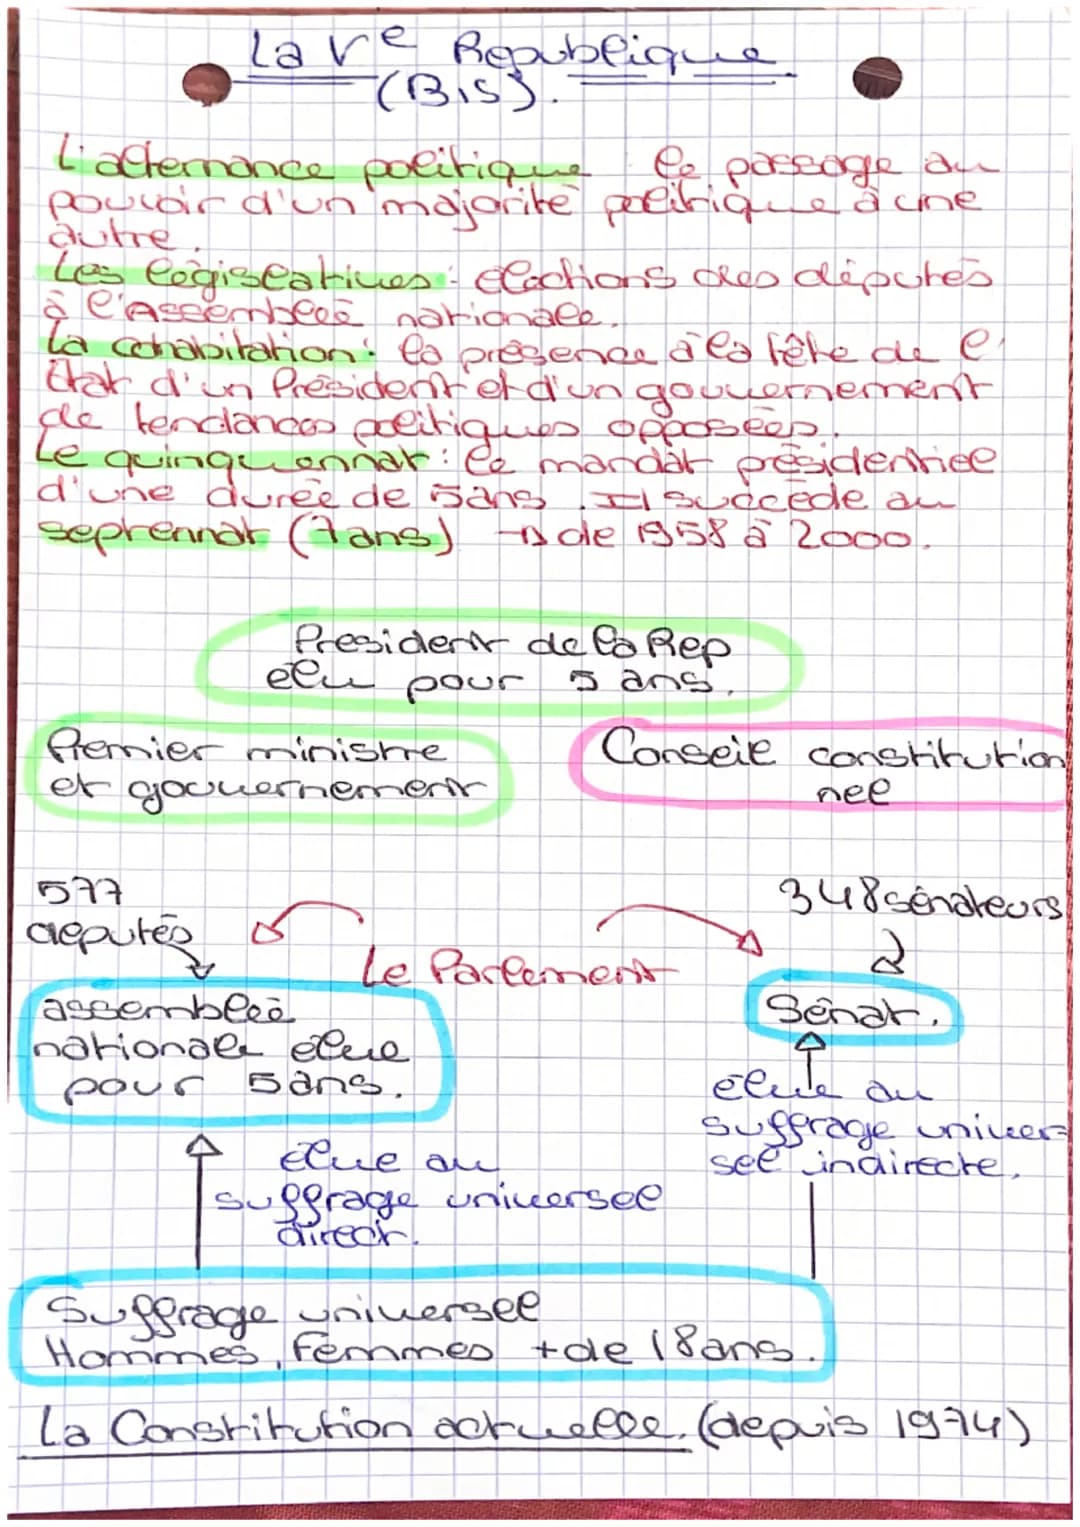 La Ve Republique
(Bis).
L'alternance politique le passage au
pouvoir d'un majorité politique à une
autre.
Les législatives : élections des députés
à l'Assemblée nationale.
La cohabitation : la présence à la tête de l'
État d'un Président et d'un gouvernement
de tendances politiques opposées.
Le quinquennat : le mandat présidentiel
d'une durée de 5 ans. Il succède au
septennat (7 ans) → de 1958 à 2000.
President de la Rep
élu pour 5 ans.
Premier ministre
et gouvernement
Conseil constitution
nel
577
députés
348 sénateurs
Le Parlement
assemblée
nationale élue
pour 5 ans.
Sénat.
élue au
suffrage univer-
sel indirecte.
élue au
suffrage universel
direct.
Suffrage universel
Hommes, Femmes + de 18 ans.
La Constitution actuelle. (depuis 1974)